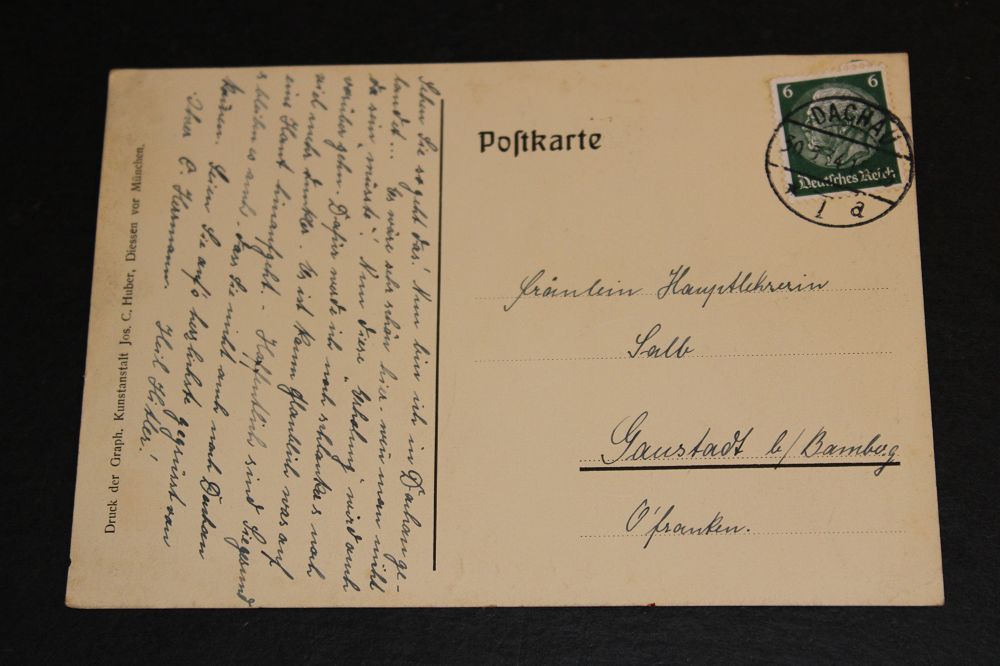 Sehen Sie so geht das! Nun bin ich in Dachau ge-
landet... Es wäre sehr schön hier - wenn man nicht
da sein "müsste". Nun diese "Erholung" wird auch
vorüber gehn. Dafür werde ich noch schlanker noch
viel mehr dunkler. Es ist kaum glaublich was auf
eine Haut hinaufgeht - Hoffentlich sind Sie gesund
& bleiben es auch - dass Sie nicht auch nach Dachau
kommen. Seien Sie auf's herzlichste gegrüsst von
Ihrer C. Herrmann. Heil Hitler!
Druck der Graph. Kunstanstalt Jos. C. Huber, Diessen vor München.
Postkarte
6 6
Deutsches Reich
DACHAU
1 a
Fräulein Hauptlehrerin
Salb
Gaustadt b/Bamberg
O'franken.